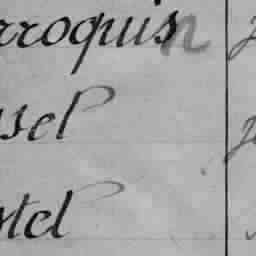 rroquin
ssel
stel